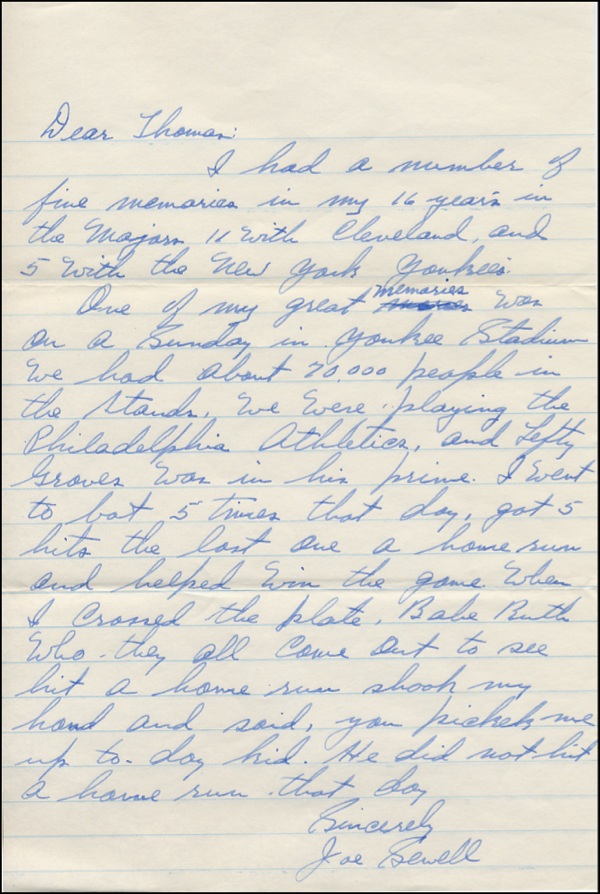 Dear Thomas:
I had a number of
fine memories in my 16 years in
the Majors 11 With Cleveland, and
5 With the New York Yankees.
One of my great memories Was
on a Sunday in Yankee Stadium
We had about 70,000 people in
the stands. We Were playing the
Philadelphia Athletics, and Lefty
Groves Was in his prime. I Went
to bat 5 times that day, got 5
hits the last one a home run
and helped Win the game. When
I crossed the plate, Babe Ruth
Who they all come out to see
hit a home run shook my
hand and said, you picked me
up to-day kid. He did not hit
a home run that day
Sincerely
Joe Sewell